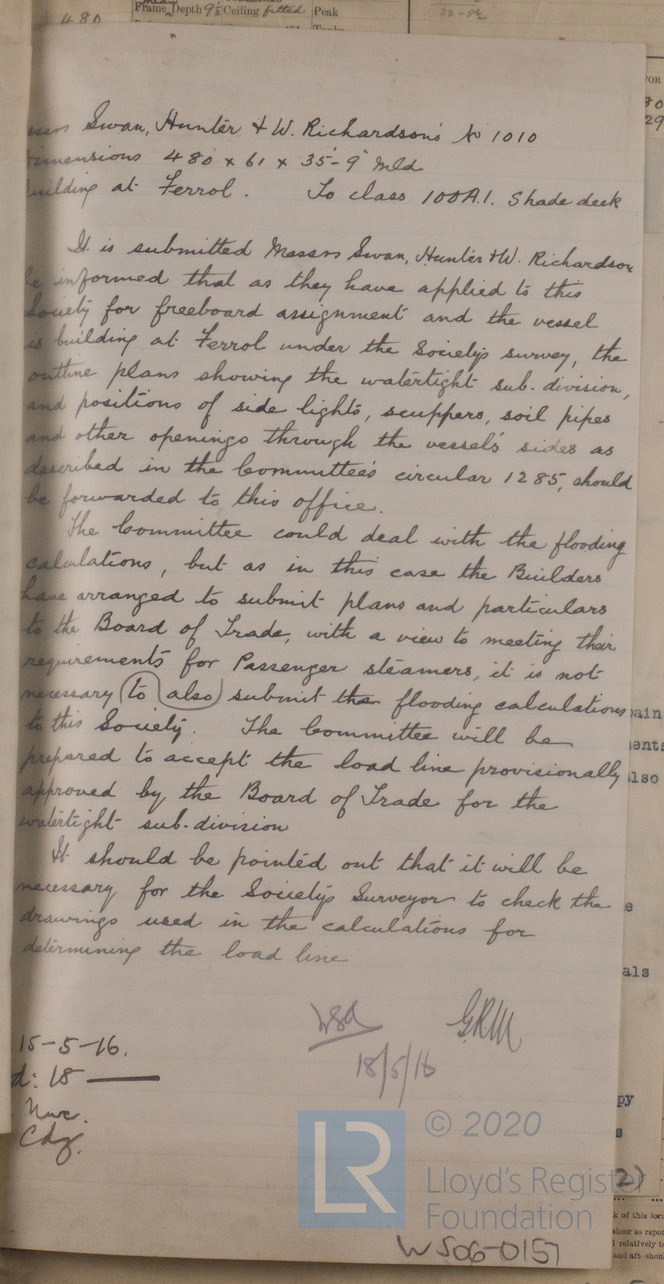 480
Frame Depth 9½ Ceiling fitted Peak
Swan, Hunter & W. Richardson's No 1010
Dimensions 480 x 61 x 35'-9" Mld
Building at Ferrol. To class 100A.1. Shade deck
It is submitted Messrs Swan, Hunter & W. Richardson
be informed that as they have applied to this
Society for freeboard assignment and the vessel
is building at Ferrol under the Society's survey, the
outline plans showing the watertight sub-division,
and positions of side lights, scuppers, soil pipes
and other openings through the vessel's sides as
described in the Committee's circular 1285, should
be forwarded to this office.
The Committee could deal with the flooding
calculations, but as in this case the Builders
have arranged to submit plans and particulars
to the Board of Trade, with a view to meeting their
requirements for Passenger steamers, it is not
necessary to also submit the flooding calculations
to this Society. The Committee will be
prepared to accept the load line provisionally
approved by the Board of Trade for the
watertight sub-division
It should be pointed out that it will be
necessary for the Society's Surveyor to check the
drawings used in the calculations for
determining the load line
GRM
18/5/16
15-5-16.
d: 18
Nwc.
© 2020
LR
Lloyd's Register
Foundation
WS06-0157